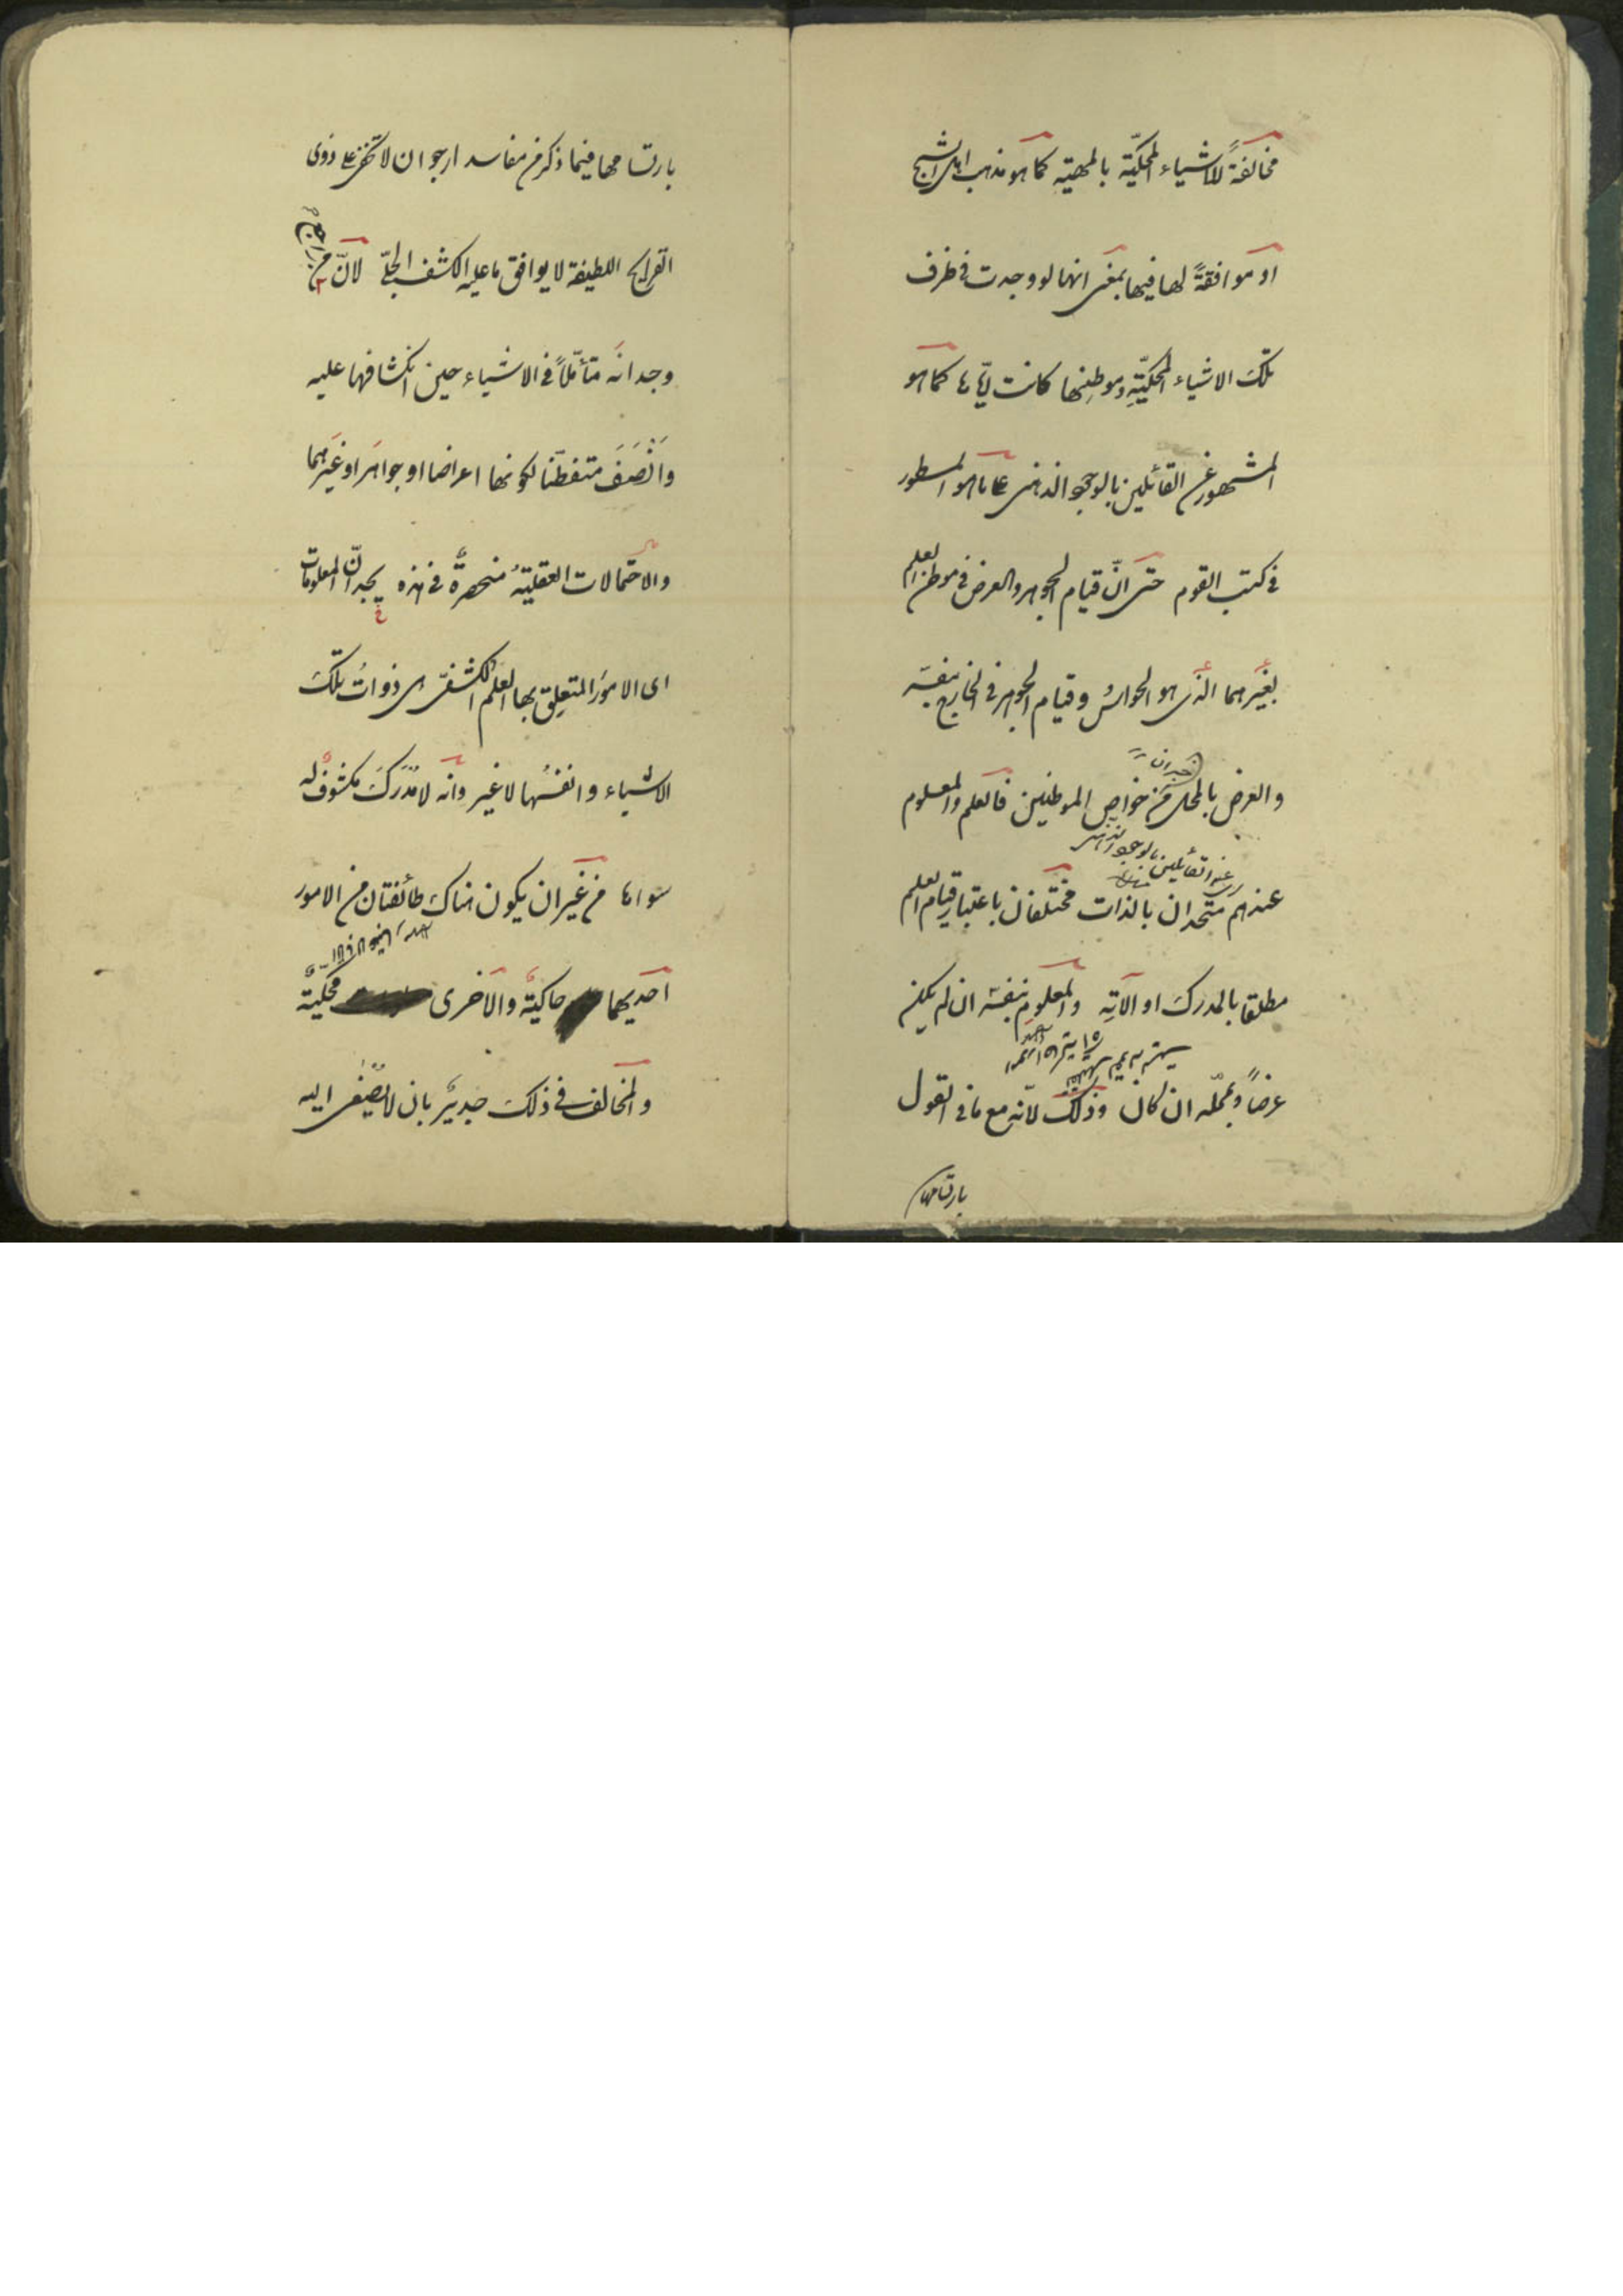 مخالفةً للاشياء المحكيّة بالمهيّة كما هو مذهب اهل الشبح
او موافقةً لها فيها بمعنى انها لو وجدت في ظرف
تلك الاشياء المحكيّةِ وموطِنِها كانت ايّاها كما هو
المشهور عن القائلين بالوجود الذهنى على ما هو المسطور
في كتب القوم حتى انّ قيام الجوهر والعرض في موطن العلم
بغيرهما الذى هو الحواسّ وقيام الجوهر في الخارج بنفسه
خبر ان
والعرض بالمحل من خواص الموطنين فالعلم والمعلوم
عند القائلين بالوجود الذهنى
عندهم متحدان بالذات مختلفان باعتبار قيام العلم
مطلقا بالمدرك او آلاتِهِ والمعلومِ بنفسه ان لم يكن
عرضاً وبمحلّه ان كان وذلك لانّه مع ما في القول
بارتسامها
بارتسامها فيما ذكر من مفاسد ارجو ان لا تخفى على ذوى
القرايح اللطيفة لا يوافق ما عليه الكشف الجلىّ لانّ من راجع
وجدانَه متأمّلاً في الاشياء حين انكشافها عليه
وَانْصَفَ متفطّنا لكونها اعراضا او جواهر او غيرهما
والاحتمالات العقليّةُ منحصرةٌ في هذه يجد انّ المعلومات
اى الامورَ المتعلِقَ بها العلم الكشفىّ هى ذواتُ تلك
الاشياء وانفسُها لا غير وانه لا مُدْرَكَ مكشوفٌ له
سواها من غير ان يكون هناك طائفتان من الامور
احديهما حاكيةٌ والاخرى محكيّةٌ
والمخالف في ذلك جديرٌ بان لا يُصْغٰى اليه